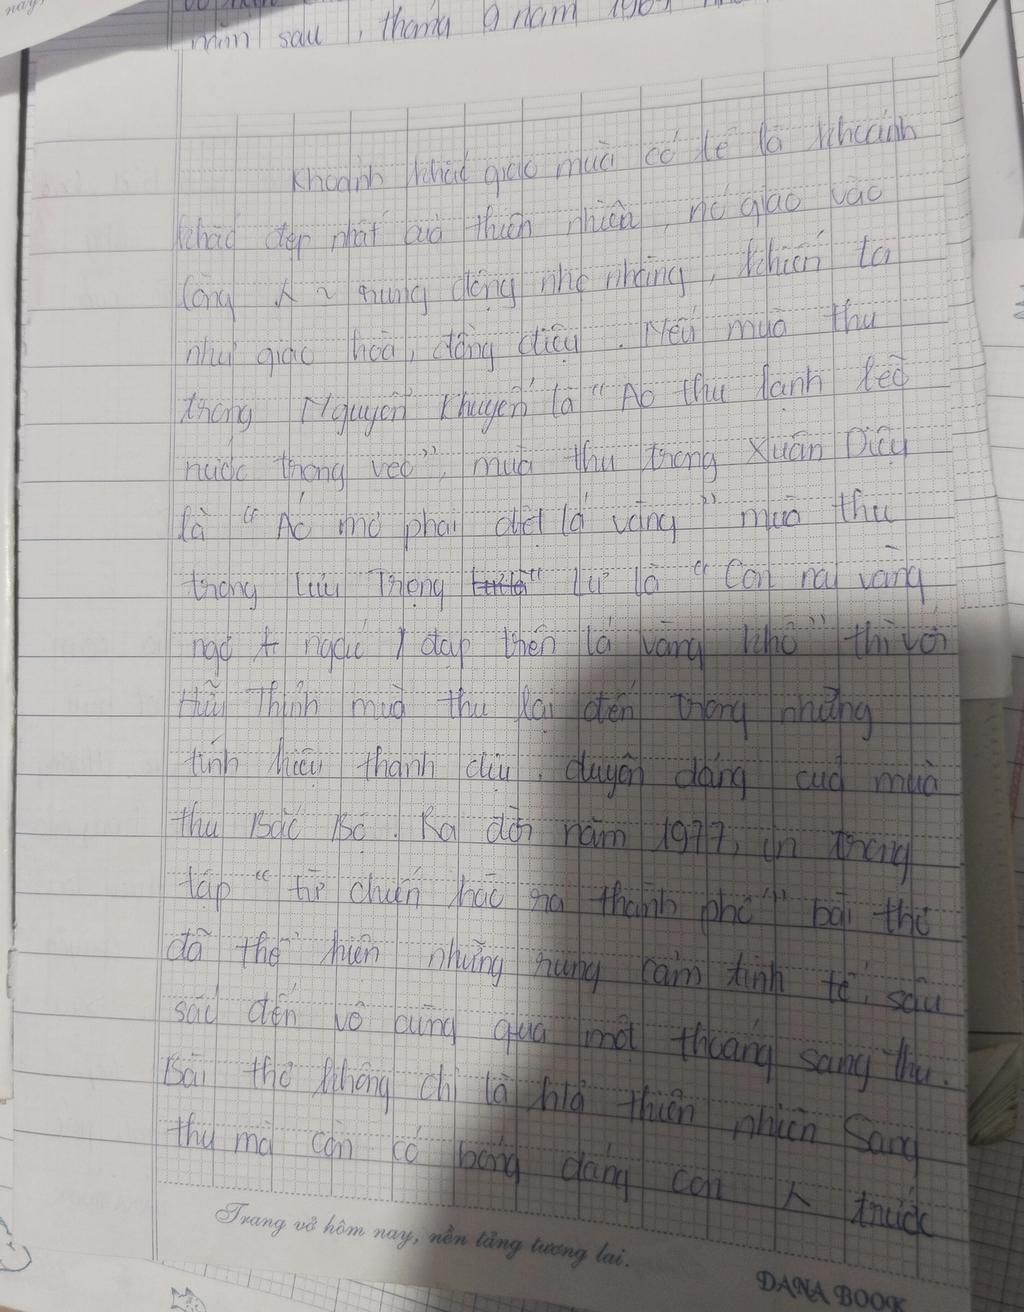 mìn sau, tháng 9 năm
Khoảnh khắc giao mùa có lẽ là khoảnh
khắc đẹp nhất của thiên nhiên, nó giao vào
lòng rung động nhẹ nhàng, khiến ta
như giao hoà, đồng điệu. Nếu mùa thu
trong Nguyễn Khuyến là "Ao thu lạnh lẽo
nước trong veo", mùa thu trong Xuân Diệu
là "Áo mơ phai dệt lá vàng" mùa thu
trong Lưu Trọng Lư là "Con nai vàng
ngơ ngác / đạp trên lá vàng khô" thì với
Hữu Thỉnh mùa thu lại đến trong những
tính hiệu thanh dịu, duyên dáng của mùa
thu Bắc Bộ. Ra đời năm 1977, in trong
tập "từ chiến hào ra thành phố" bài thơ
đã thể hiện những rung cảm tinh tế, sâu
sắc đến vô cùng qua một thoáng sang thu.
Bài thơ không chỉ là h/ả thiên nhiên Sang
thu mà còn có bóng dáng con trước
Trang vở hôm nay, nền tảng tương lai.
DANA BOOK